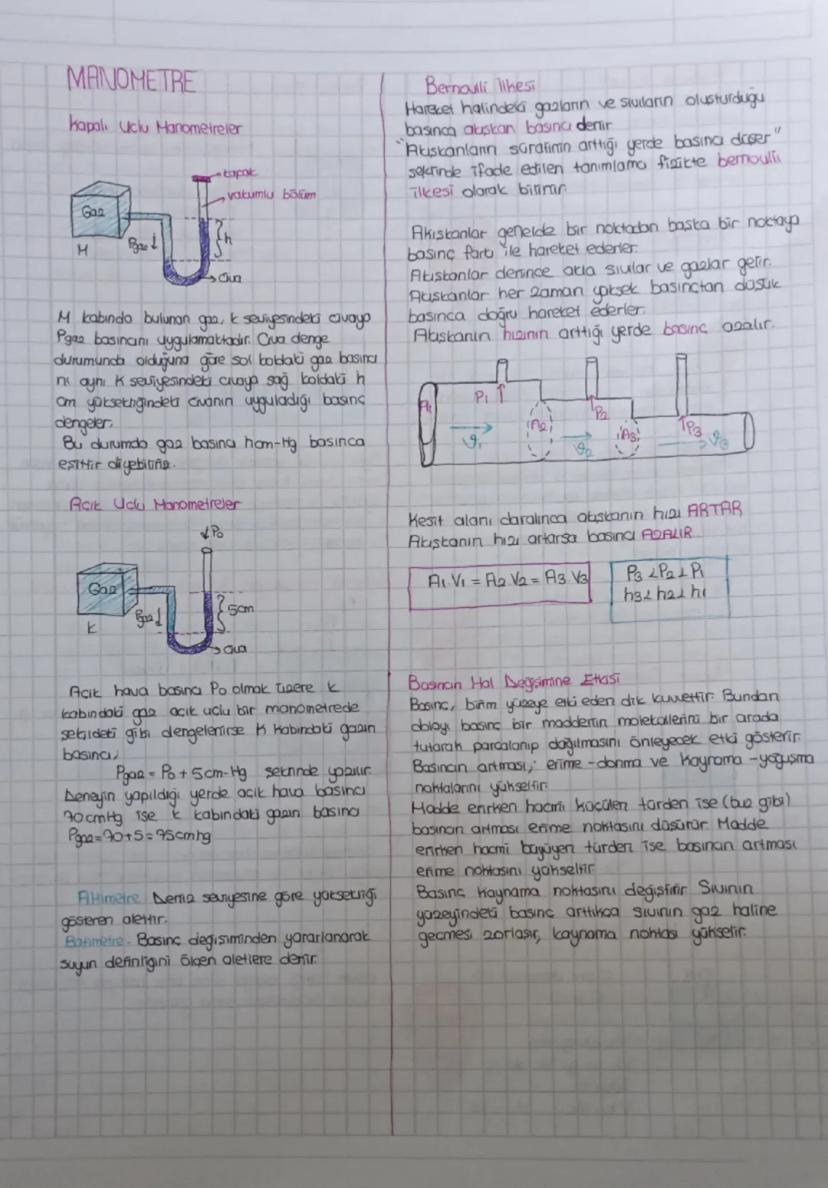 MANOMETRE
Kapalı Uçlu Manometreler
kapak
vakumlu bölüm
Gaz
Pgaz
h
M
Cıva
M kabında bulunan gaz, K seviyesindeki cıvaya
Pgaz basıncını uygulamaktadır. Cıva denge
durumunda olduğuna göre sol koldaki gaz basıncı
nı aynı K seviyesindeki cıvaya sağ koldaki h
cm yüksekliğindeki cıvanın uyguladığı basınç
dengeler.
Bu durumda gaz basıncı hcm-Hg basınca
eşittir diyebiliriz.
Açık Uçlu Manometreler
P0
Gaz
Pgaz
5cm
K
Cıva
Açık hava basıncı P0 olmak üzere K
kabındaki gaz açık uçlu bir manometrede
şekildeki gibi dengelenirse K kabındaki gazın
basıncı,
Pgaz = P0 + 5cm-Hg şeklinde yazılır.
Deneyin yapıldığı yerde açık hava basıncı
70cmHg ise K kabındaki gazın basıncı
Pgaz=70+5=75cmhg
Altimetre: Deniz seviyesine göre yüksekliği
gösteren alettir.
Batimetre: Basınç değişiminden yararlanarak
suyun derinliğini ölçen aletlere denir.
Bernoulli İlkesi
Hareket halindeki gazların ve sıvıların oluşturduğu
basınca akışkan basıncı denir
"Akışkanların süratinin arttığı yerde basıncı düşer"
şeklinde ifade edilen tanımlama fizikte bernoulli
ilkesi olarak bilinir.
Akışkanlar genelde bir noktadan başka bir noktaya
basınç farkı ile hareket ederler.
Akışkanlar denince akla sıvılar ve gazlar gelir.
Akışkanlar her zaman yüksek basınçtan düşük
basınca doğru hareket ederler.
Akışkanın hızının arttığı yerde basınç azalır.
A1
P1
ϑ1
A2
P2
ϑ2
A3
P3
ϑ3
Kesit alanı daralınca akışkanın hızı ARTAR
Akışkanın hızı artarsa basıncı AZALIR
A1.V1 = A2.V2 = A3.V3
P3<P2<P1
h3<h2<h1
Basıncın Hal Değişimine Etkisi
Basınç, birim yüzeye etki eden dik kuvvettir. Bundan
dolayı basınç bir maddenin moleküllerini bir arada
tutarak parçalanıp dağılmasını önleyecek etki gösterir.
Basıncın artması, erime-donma ve kaynama-yoğuşma
noktalarını yükseltir.
Madde erirken hacmi küçülen türden ise (buz gibi)
basıncın artması erime noktasını düşürür. Madde
erirken hacmi büyüyen türden ise basıncın artması
erime noktasını yükseltir
Basınç kaynama noktasını değiştirir. Sıvının
yüzeyindeki basınç arttıkça sıvının gaz haline
geçmesi zorlaşır, kaynama noktası yükselir.